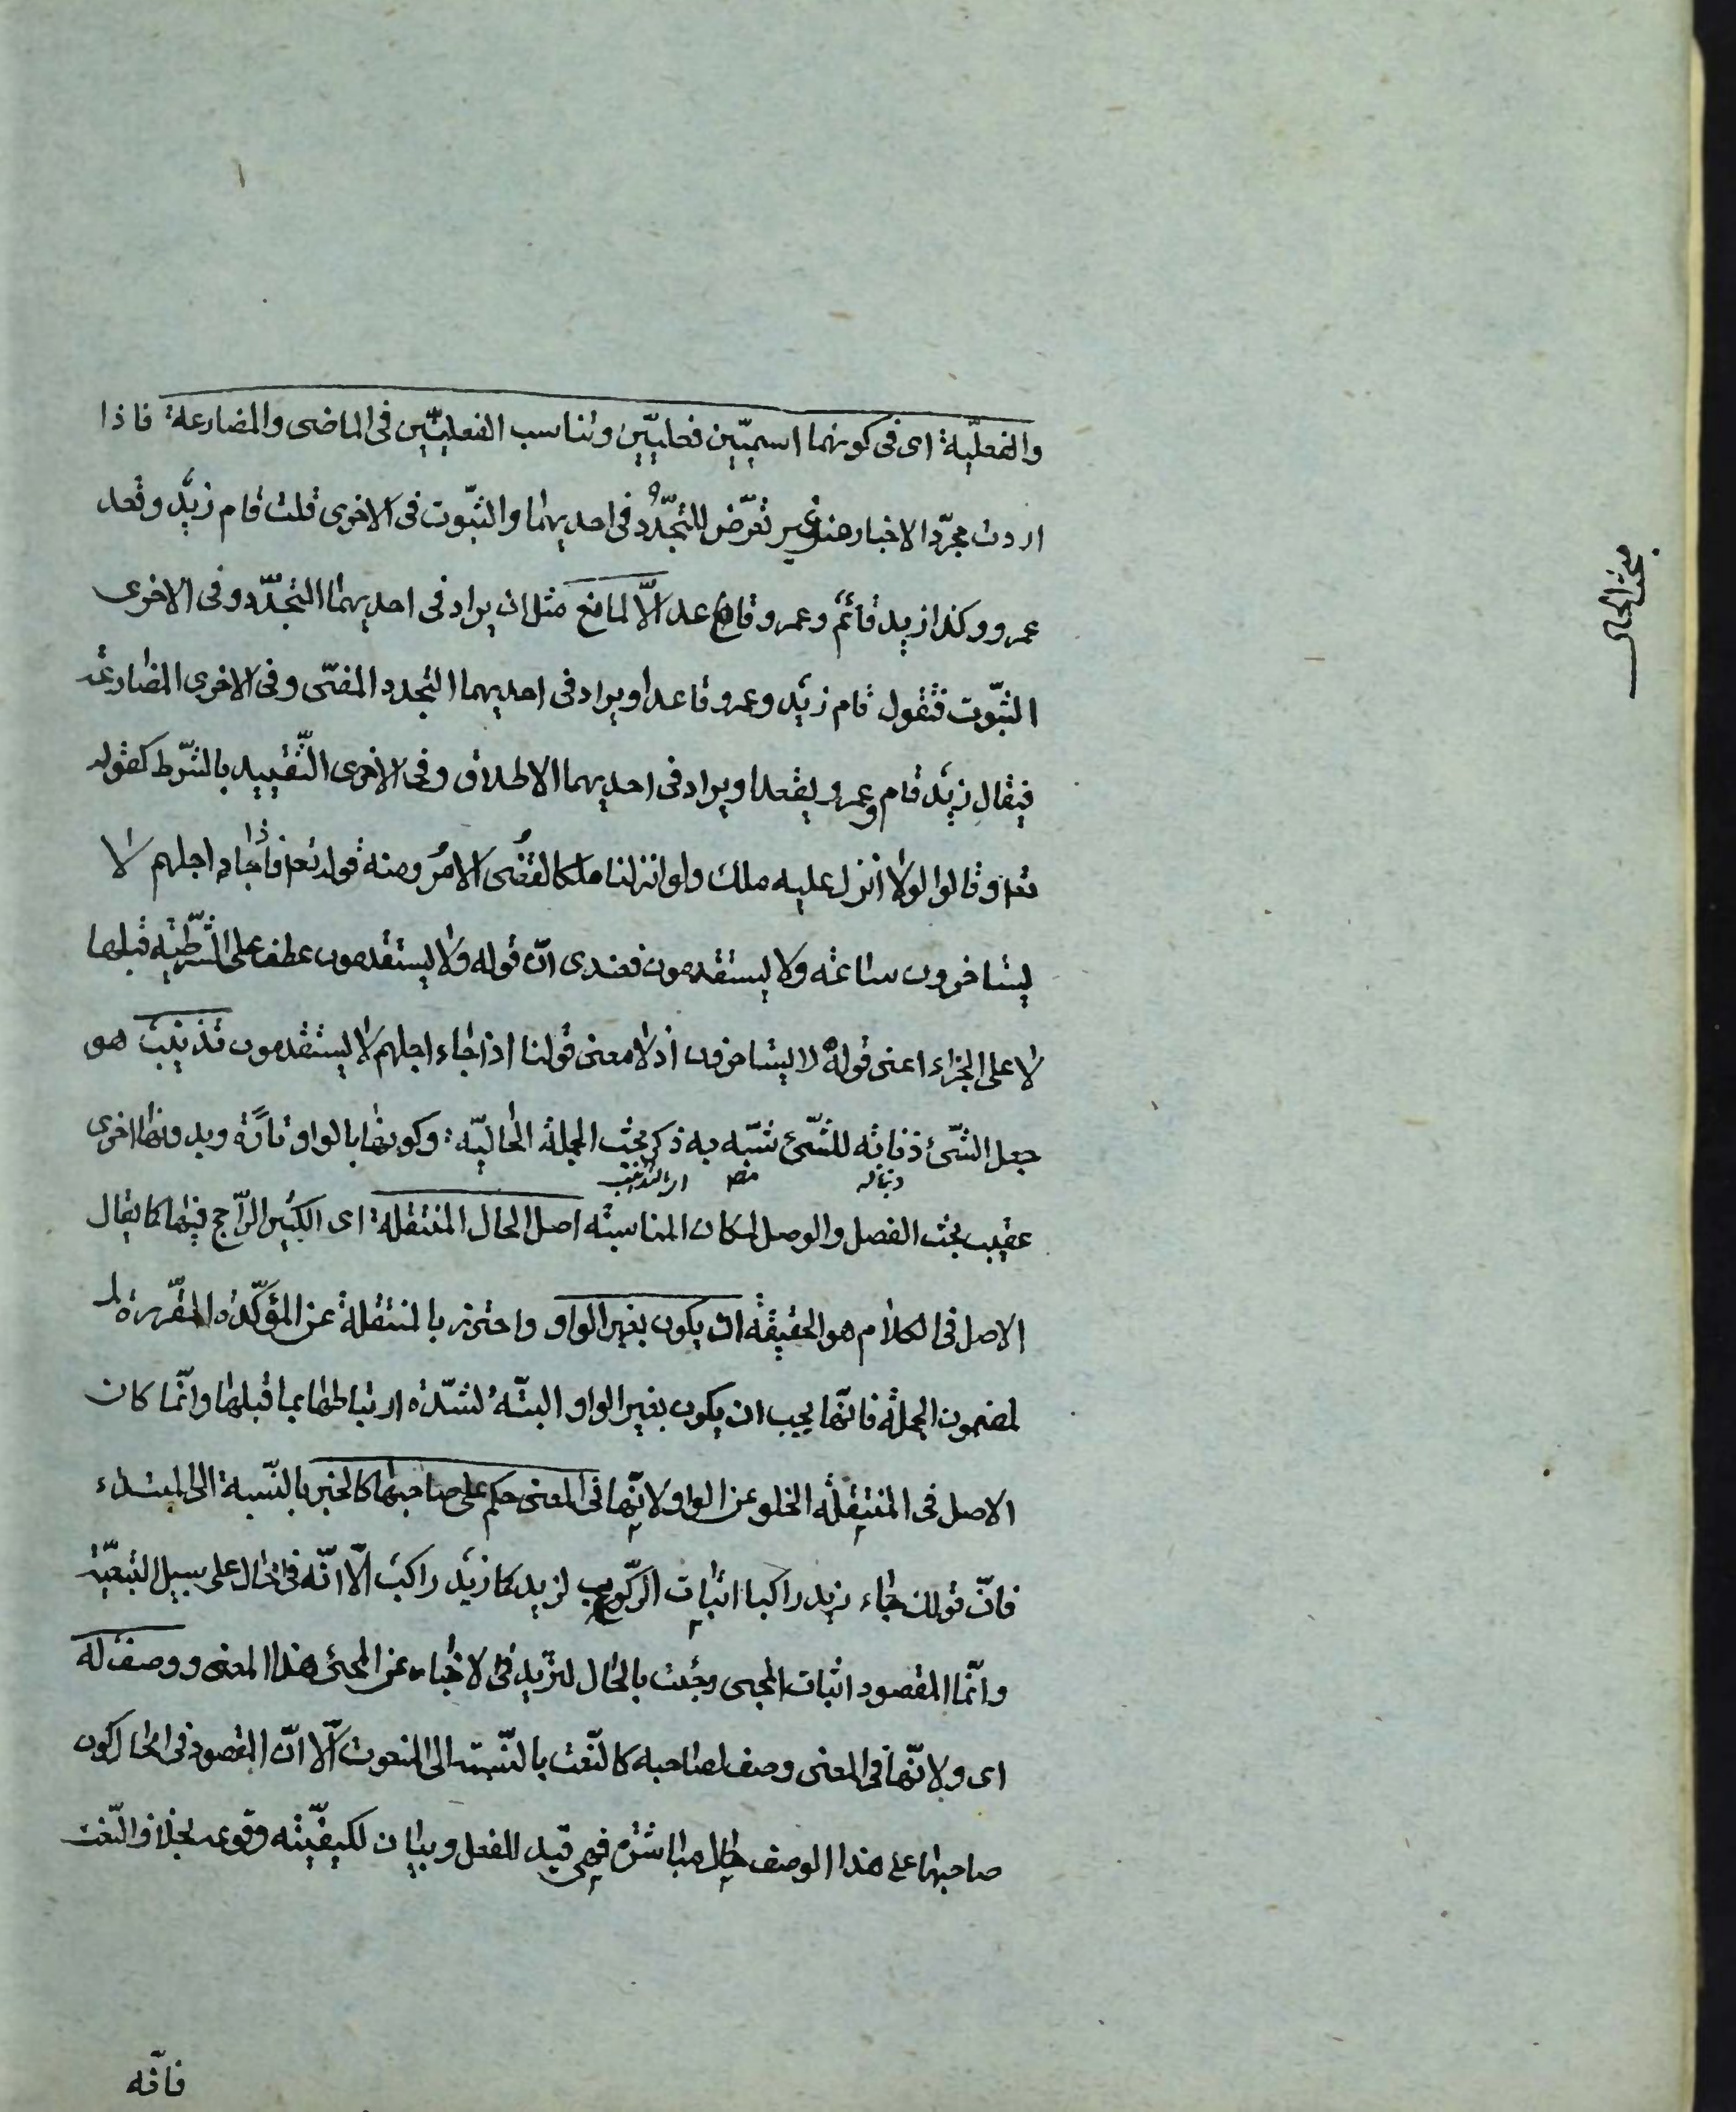 والفعليّة اى فى كونهما اسميّتين فعليّتين وتناسب الفعليّتين فى الماضى والمضارعة فاذا
اردت مجرّد الاخبار من غير تعرّض للتجدّد فى احديهما والثبّوت فى الاخرى قلت قام زيد وقعد
عمرو وكذا زيد قائم وعمرو قاعد الّا لمانع مثل ان يراد فى احديهما التجدّد وفى الاخرى
الثبّوت فتقول قام زيد وعمرو قاعد او يراد فى احديهما التجدد المضّى وفى الاخرى المضارعة
فيقال زيد قام وعمرو يقعد او يراد فى احديهما الاطلاق وفى الاخرى التّقييد بالشّرط كقوله
تعه وقالوا لولا انزل عليه ملك ولو انزلنا ملكا لقُضى الامرُ ومنه قوله تعه فاذا جاء اجلهم لا
يستاخرون ساعته ولا يستقدمون فعندى انّ قوله ولا يستقدمون عطف على الشّرطيّه قبلها
لا على الجزاء اعنى قوله لا يستاخرون اذ لا معنى قولنا اذا جاء اجلهم لا يستقدمون تذنيب هو
جعل الشّئ ذنابه للشّئ شبّه به ذكر بحث الجملة الحاليّه وكونها بالواو تارًة وبدونها اخرى
دنباله مصه اى التذنيب
عقيب بحث الفصل والوصل لمكان المناسبته اصل الحال المنتقله اى الكثير الرّاجح فيها كا يقال
الاصل فى الكلام هو الحقيقه ان يكون بغير الواو واحترز بالمنتقلة عن المؤكّدة المقرّرة
لمضمون الجملة فانّها يجب ان يكون بغير الواو البتّه لشدّة ارتباطها بما قبلها وانّما كان
الاصل فى المنتقلّه الخلو عن الواو لانّها فى المعنى حكم على صاحبها كالخبر بالنّسبة الى المبتداء
فانّ قولك جاء زيد راكبا اثبات الرّكوب لزيد كا زيد راكب الّا انّه فى الحال على سبيل التبعيّة
وانّما المقصود اثبات المجى وجئت بالحال لتزيد فى الاخبار عن المجئ هذا المعنى ووصف له
اى ولانّها فى المعنى وصف لصاحبه كالنّعت بالنّسبته الى المنعوت الّا انّ المقصود فى الحال كون
صاحبها على هذا الوصف حال مباشرة فهى قيد للفعل وبيان لكيفيّته وقوعه بخلاف النّعت
فانّه
بحث الحال